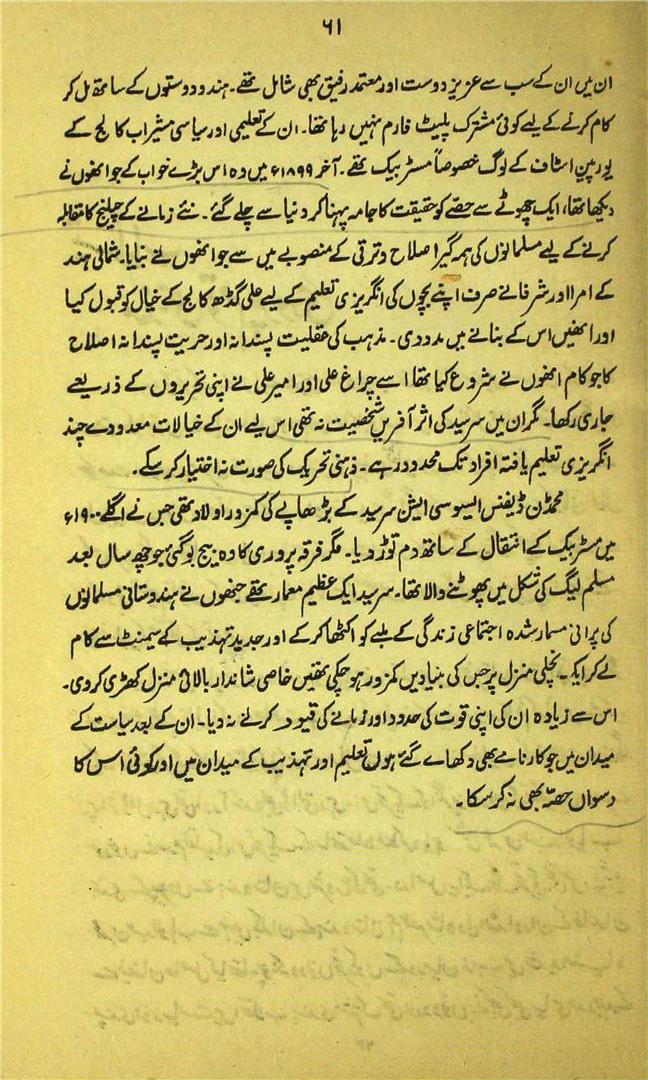 ۶۱
ان میں ان کے سب سے عزیز دوست اور معتمد رفیق بھی شامل تھے۔ ہندو دوستوں کے ساتھ مل کر
کام کرنے کے لیے کوئی مشترک پلیٹ فارم نہیں رہا تھا۔ ان کے تعلیمی اور سیاسی مشیر اب کالج کے
یورپین اسٹاف کے لوگ خصوصاً مسٹر بیک تھے۔ آخر ۱۸۹۹ء میں وہ اس بڑے خواب کے جو انھوں نے
دیکھا تھا، ایک چھوٹے سے حصّے کو حقیقت کا جامہ پہنا کر دنیا سے چلے گئے۔ نئے زمانے کے چیلنج کا مقابلہ
کرنے کے لیے مسلمانوں کی ہمہ گیر اصلاح و ترقی کے منصوبے میں سے جو انھوں نے بنایا۔ شمالی ہند
کے امرا اور شرفا نے صرف اپنے بچوں کی انگریزی تعلیم کے لیے علی گڈھ کالج کے خیال کو قبول کیا
اور انھیں اس کے بنانے میں مدد دی۔ مذہب کی عقلیت پسندانہ اور حریت پسندانہ اصلاح
کا جو کام انھوں نے شروع کیا تھا اسے چراغ علی اور امیر علی نے اپنی تحریروں کے ذریعے
جاری رکھا۔ مگر ان میں سرسید کی اثر آفریں شخصیت نہ تھی اس لیے ان کے خیالات معدودے چند
انگریزی تعلیم یافتہ افراد تک محدود رہے۔ ذہنی تحریک کی صورت نہ اختیار کر سکے۔
محمڈن ڈیفنس ایسوسی ایشن سرسید کے بڑھاپے کی کمزور اولاد تھی جس نے اگلے ۱۹۰۰ء
میں مسٹر بیک کے انتقال کے ساتھ دم توڑ دیا۔ مگر فرقہ پروری کا وہ بیج بو گئی جو چھ سال بعد
مسلم لیگ کی شکل میں پھوٹنے والا تھا۔ سرسید ایک عظیم معمار تھے جنھوں نے ہندوستانی مسلمانوں
کی پرانی مسمار شدہ اجتماعی زندگی کے ملبے کو اکٹھا کر کے اور جدید تہذیب کے سیمنٹ سے کام
لے کر ایک۔ نچلی منزل پر جس کی بنیادیں کمزور ہو چکی تھیں خاصی شاندار بالائی منزل کھڑی کر دی۔
اس سے زیادہ ان کی اپنی قوت کی حدود اور زمانے کی قیود نے کرنے نہ دیا۔ ان کے بعد سیاست کے
میدان میں جو کارنامے بھی دکھائے گئے ہوں تعلیم اور تہذیب کے میدان میں اور کوئی اس کا
دسواں حصّہ بھی نہ کر سکا۔